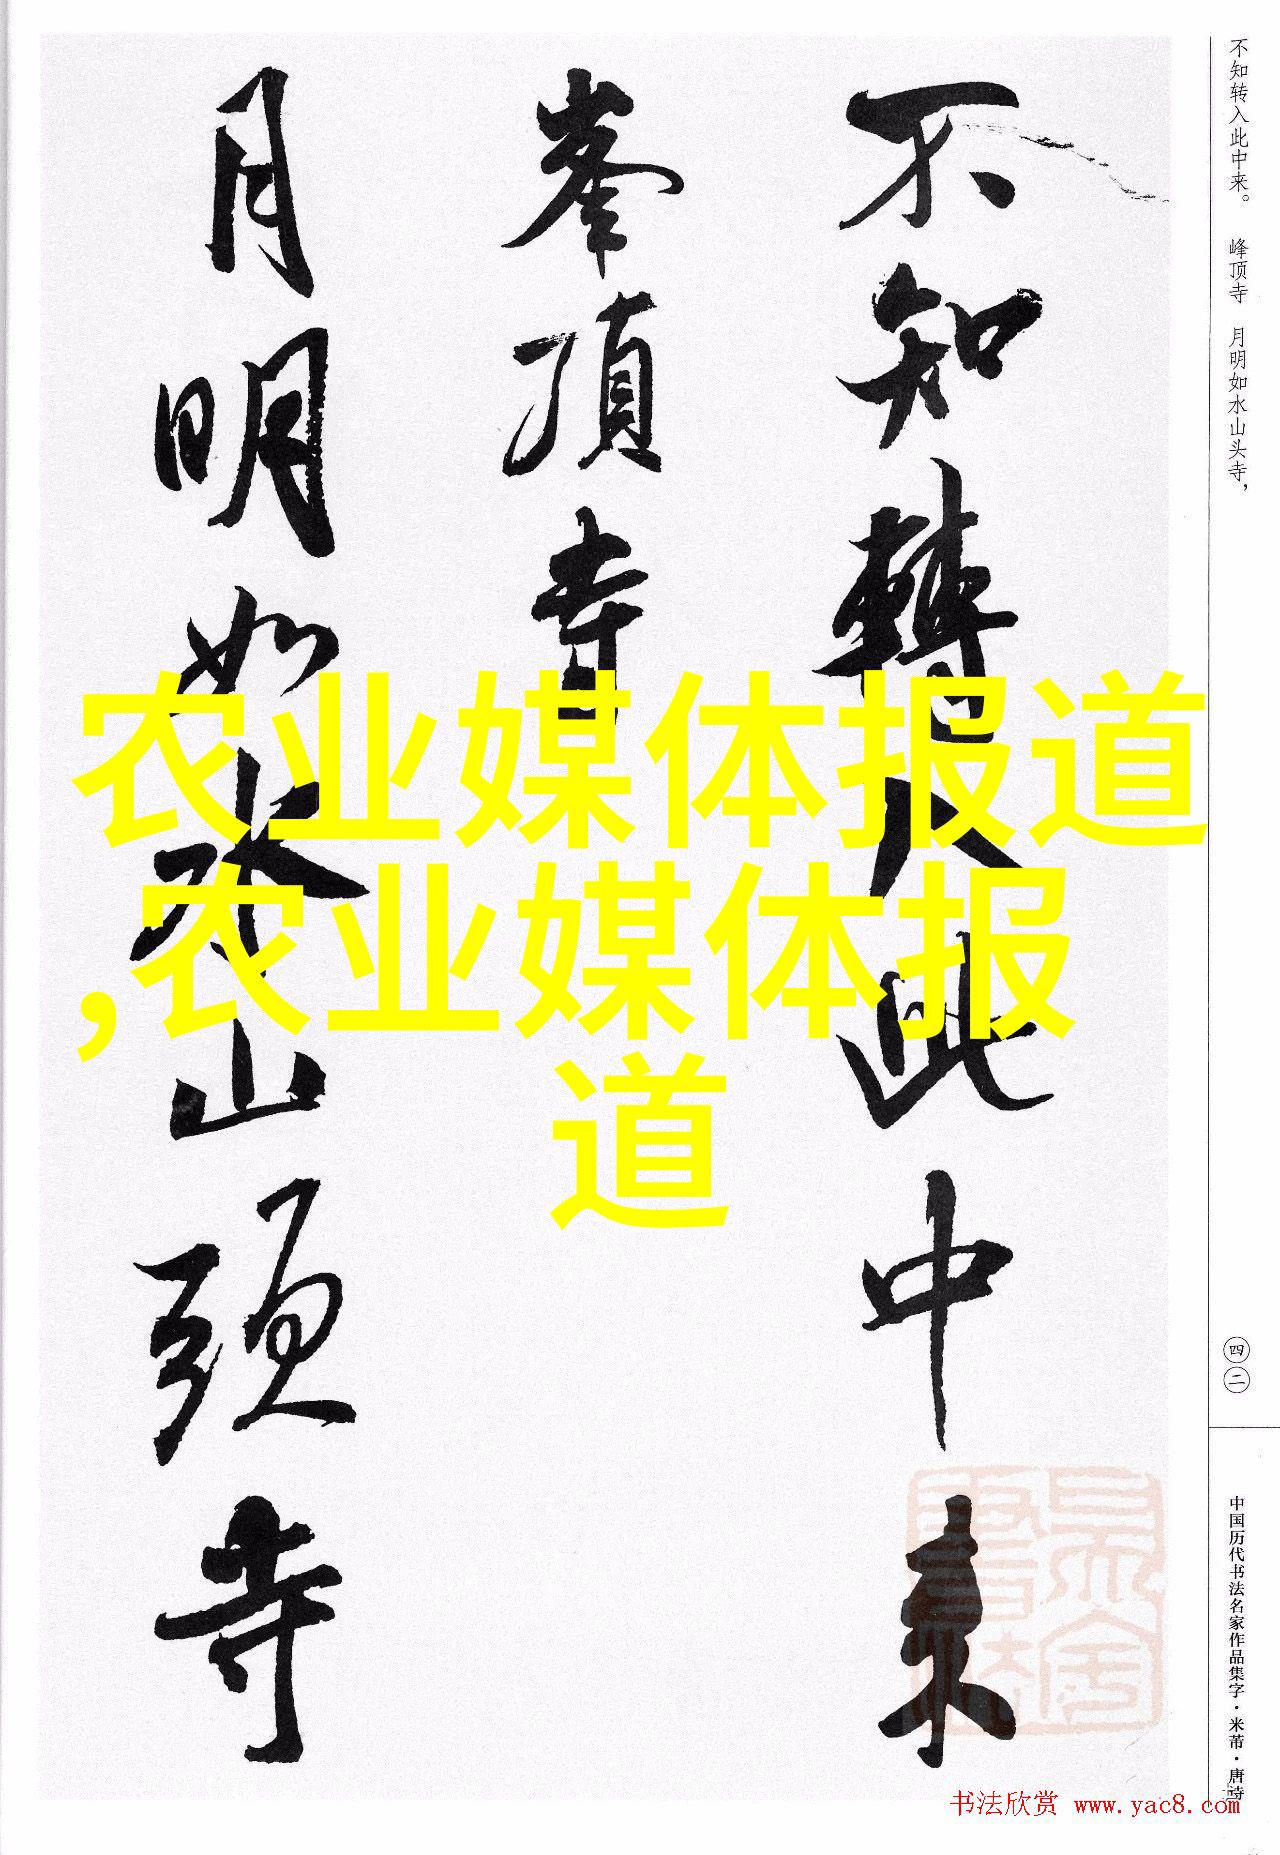 不知转入此中来。 峰顶寺 月明如水山头寺，
不知轉入此中来
峯頂寺
月明如水山頭寺
农业媒体报道
,农业媒体报
道
四二
中国历代书法名家作品集字·米芾·唐诗
书法欣赏 www.yac8.com